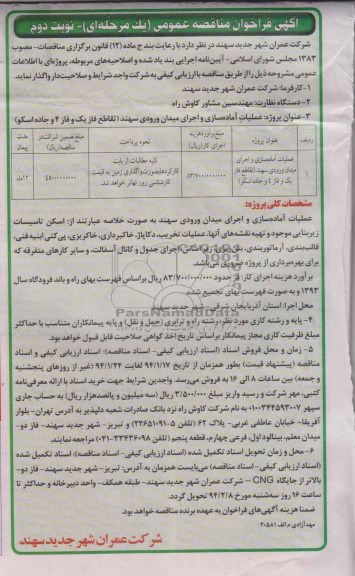 آگهی فراخوان مناقصه عمومی (یک مرحله‌ای)- نوبت دوم
شرکت عمران شهر جدید سهند در نظر دارد با رعایت بند ج ماده (۱۲) قانون برگزاری مناقصات- مصوب
۱۳۸۳ مجلس شورای اسلامی- آیین‌نامه اجرایی بند یاد شده و اصلاحیه‌های مربوطه، پروژه‌ای با اطلاعات
عمومی مشروحه ذیل را از طریق مناقصه با ارزیابی کیفی به شرکت واجد شرایط و صلاحیت‌دار واگذار نماید.
۱- کارفرما: شرکت عمران شهر جدید سهند
۲- دستگاه نظارت: مهندسین مشاور کاوش راه
۳- عنوان پروژه: عملیات آماده‌سازی و اجرای میدان ورودی سهند (تقاطع فاز یک و فاز ۴ و جاده اسکو)
ردیف
عنوان پروژه
مبلغ برآورد هزینه اجرای کار (ریال)
نحوه پرداخت
مبلغ تضمین شرکت در مناقصه (ریال)
مدت پیمان
۱
عملیات آماده‌سازی و اجرای میدان ورودی سهند (تقاطع فاز یک و فاز ۴ و جاده اسکو)
۸۳/۷۰۰/۰۰۰/۰۰۰
کلیه مطالبات از بابت کارکردها بصورت واگذاری زمین به قیمت کارشناسی روز تهاتر خواهد شد.
۱۲ ماه
مشخصات کلی پروژه:
عملیات آماده‌سازی و اجرای میدان ورودی سهند به صورت خلاصه عبارتند از: اسکن تاسیسات
زیربنایی موجود و تهیه نقشه‌های آنها، عملیات تخریب، دکاپاژ، خاکبرداری، خاکریزی، پی کنی ابنیه فنی،
قالب‌بندی، آرماتوربندی، بتن‌ریزی، زیراساس، اجرای جدول و کانال آسفالت، و سایر کارهای متفرقه که
برای بهره‌برداری از پروژه ضروری می‌باشد.
برآورد هزینه اجرای کار: از حدود ۸۳/۷۰۰/۰۰۰/۰۰۰ ریال براساس فهرست بهای راه و باند فرودگاه سال
۱۳۹۳ و به صورت فهرست بهای تجمیع شده.
محل اجرا: استان آذربایجان شرقی- شهر جدید سهند
۴- پایه و رشته کاری مورد نظر: رشته راه و ترابری (حمل و نقل) و پایه پیمانکاران متناسب با حداکثر
مبلغ ظرفیت کاری مجاز پیمانکار براساس تاریخ اخذ گواهی صلاحیت قابل قبول خواهد بود.
۵- زمان و محل فروش اسناد (اسناد ارزیابی کیفی- اسناد مناقصه): اسناد ارزیابی کیفی و اسناد
مناقصه (پیشنهاد قیمت) بطور همزمان از تاریخ ۹۴/۱/۱۷ لغایت ۹۴/۱/۲۴ (غیر از روزهای پنجشنبه
و جمعه) بین ساعات ۸ الی ۱۶ به فروش می‌رسد. واجدین شرایط جهت خرید اسناد با ارائه معرفی‌نامه
کتبی، مهر شرکت و رسید واریز مبلغ ۳/۵۰۰/۰۰۰ ریال (سه میلیون و پانصدهزار ریال) به حساب جاری
سپهر ۰۱۰۰۳۴۴۵۹۳۰۰۷ به نام شرکت کاوش راه نزد بانک صادرات شعبه دلپذیر به آدرس تهران- بلوار
آفریقا- خیابان عاطفی غربی- پلاک ۶۲ (تلفن ۵-۲۲۶۵۱۰۹۱) و تبریز- شهر جدید سهند- فاز دو-
میدان معلم، بینالود اول، فرعی چهارم، قطعه پنجم (تلفن ۰۴۱-۳۳۴۳۶۰۹۸) مراجعه نمایند.
۶- محل و زمان تحویل اسناد تکمیل شده (اسناد ارزیابی کیفی- اسناد مناقصه): اسناد تکمیل شده
(اسناد ارزیابی کیفی- اسناد مناقصه) می‌بایست همزمان به آدرس: تبریز- شهر جدید سهند- فاز دو-
بالاتر از جایگاه CNG - شرکت عمران شهر جدید سهند- طبقه همکف- واحد دبیرخانه و حداکثر تا
ساعت ۱۶ روز سه‌شنبه مورخ ۹۴/۲/۸ تحویل گردد.
ضمنا هزینه آگهی‌های فراخوان به عهده برنده مناقصه خواهد بود.
مهدآزادی م الف ۲۰۵۸۱
شرکت عمران شهر جدید سهند